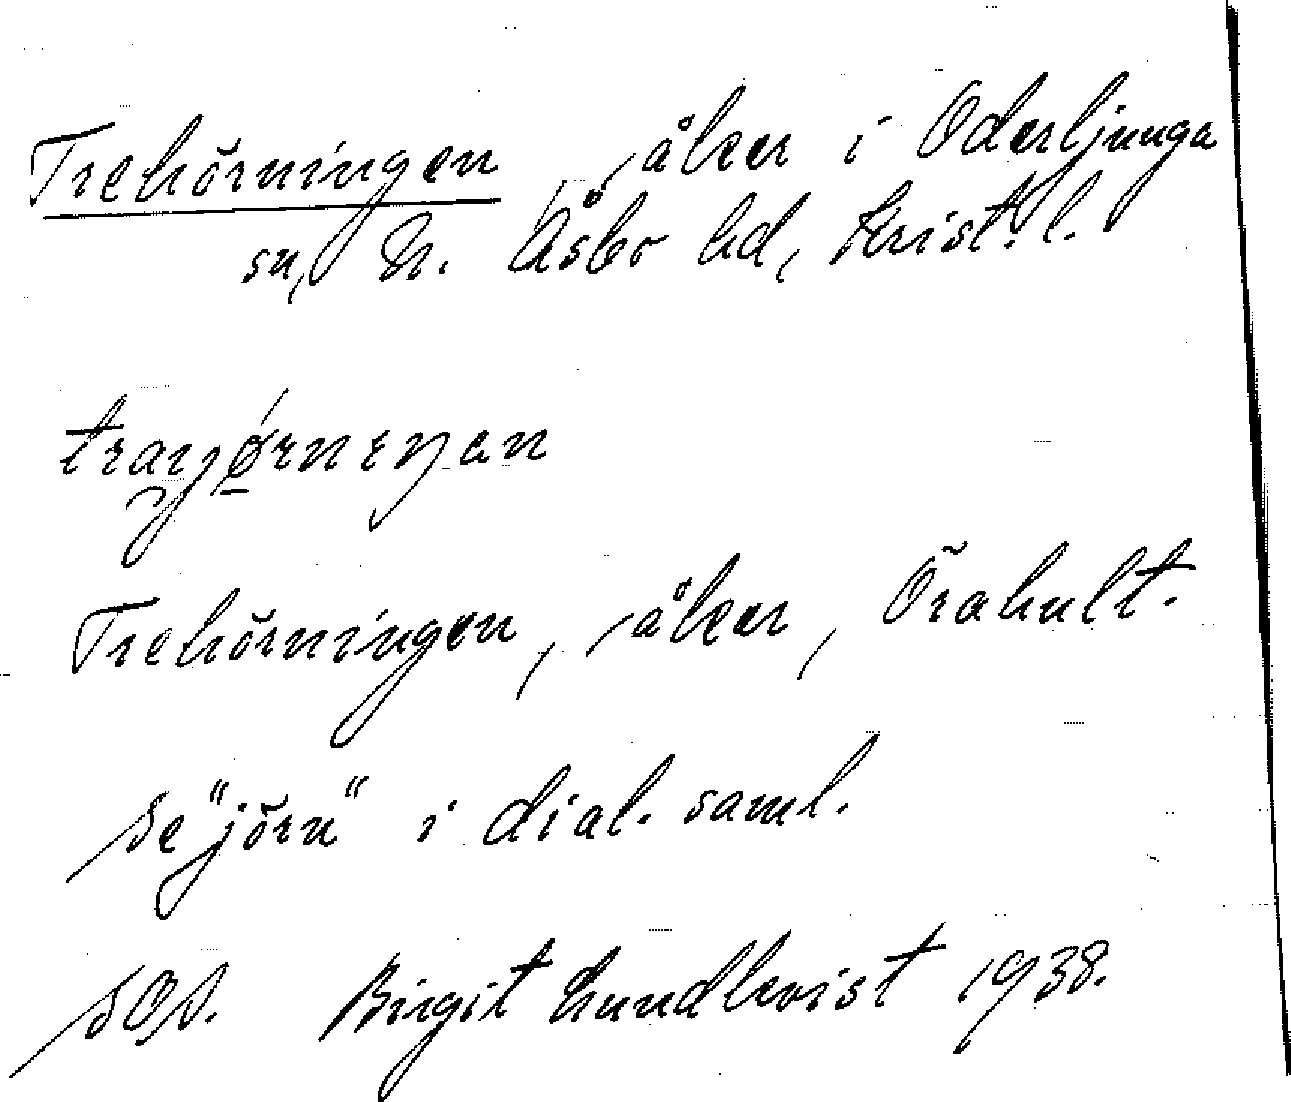 Trehörningen, åker i Oderljunga
sn, N. Åsbo hd, Krist. l.
Trehörningen, åker, Örahult.
Se "jörn" i dial. saml.
Birgit Lundkvist 1938.